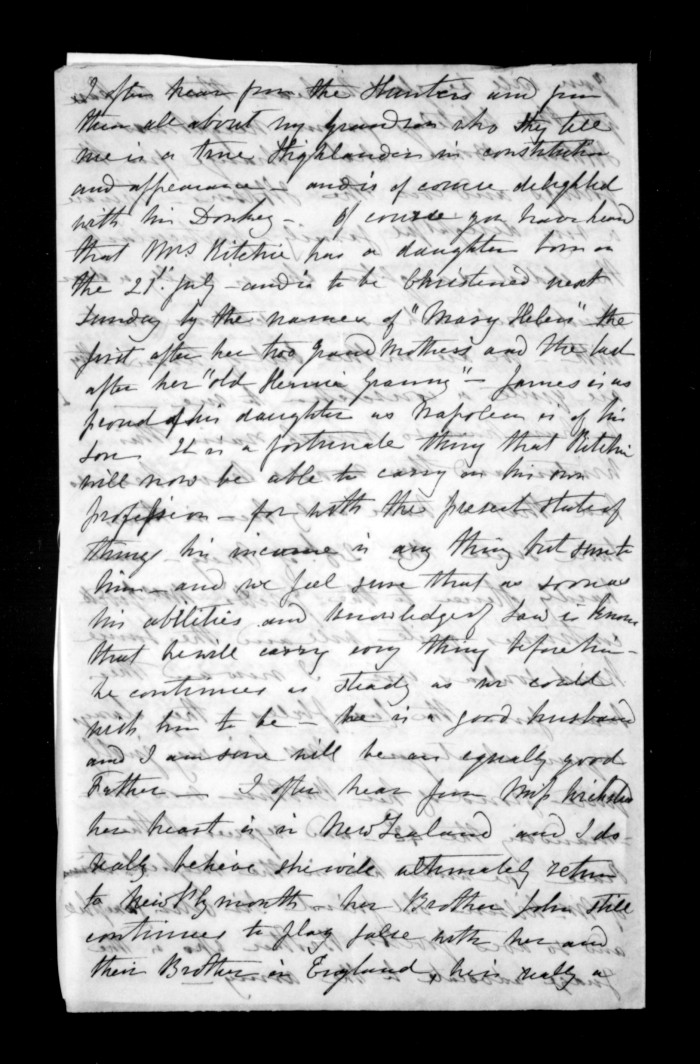 I often hear from the Hunters and from
them all about my grandson who they tell
me is a true Highlander in constitution
and appearance – and is of course delighted
with his Donkey – Of course you have heard
that Mrs Ritchie has a daughter born on
the 21st July – and is to be Christened next
Sunday by the names of "Mary Helen" the
first after her two Grand Mothers and the last
after her "old Granny" – James is as
proud of his daughter as Napoleon is of his
Son. It is a fortunate thing that Ritchie
will now be able to carry on his own
profession – for with the present state of
things his income is any thing but sure to
him – and we feel sure that as soon as
his abilities and knowledge of Law is known
that he will carry every thing before him –
he continues as steady as we could
wish him to be – he is a good husband
and I am sure will be an equally good
Father – I often hear from Mrs
her heart is in New Zealand and I do
really believe she will ultimately return
to New Plymouth – her Brother John still
continues to play false with her and
their Brother in England, he is really a